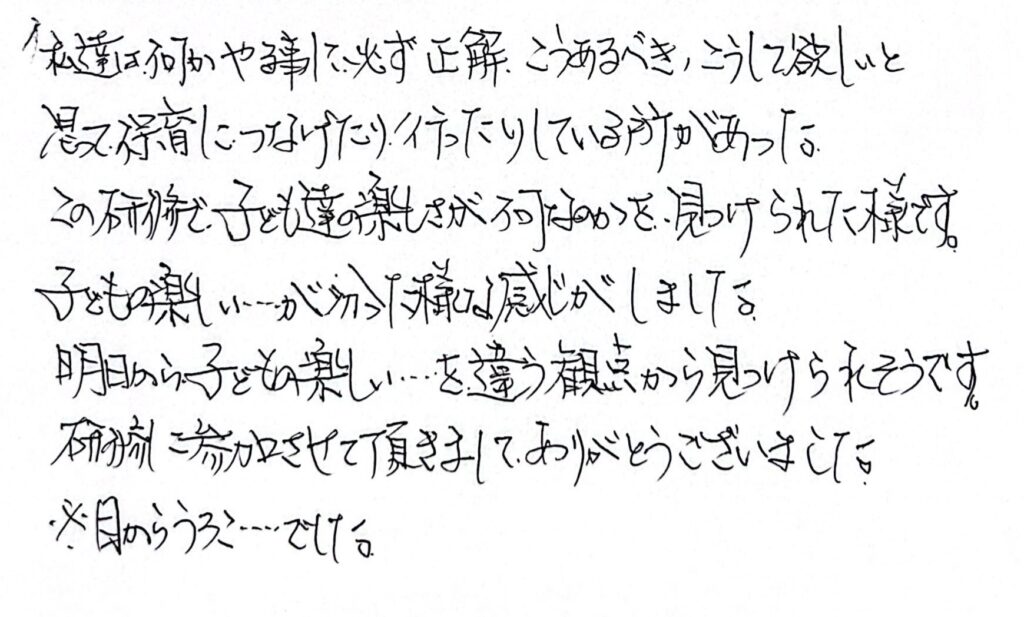 私達は何かやる事して、必ず正解、こうあるべき、こうして欲しいと
思って保育につなげたり、行ったりしている所があった。
この研修で、子ども達の楽しさが何なのかを、見つけられた様です。
子どもの楽しい……が分った様な感じがしました。
明日から、子どもの楽しい……を違う観点から見つけられそうです。
研修に参加させて頂きまして、ありがとうございました。
※目からうろこ……でした。